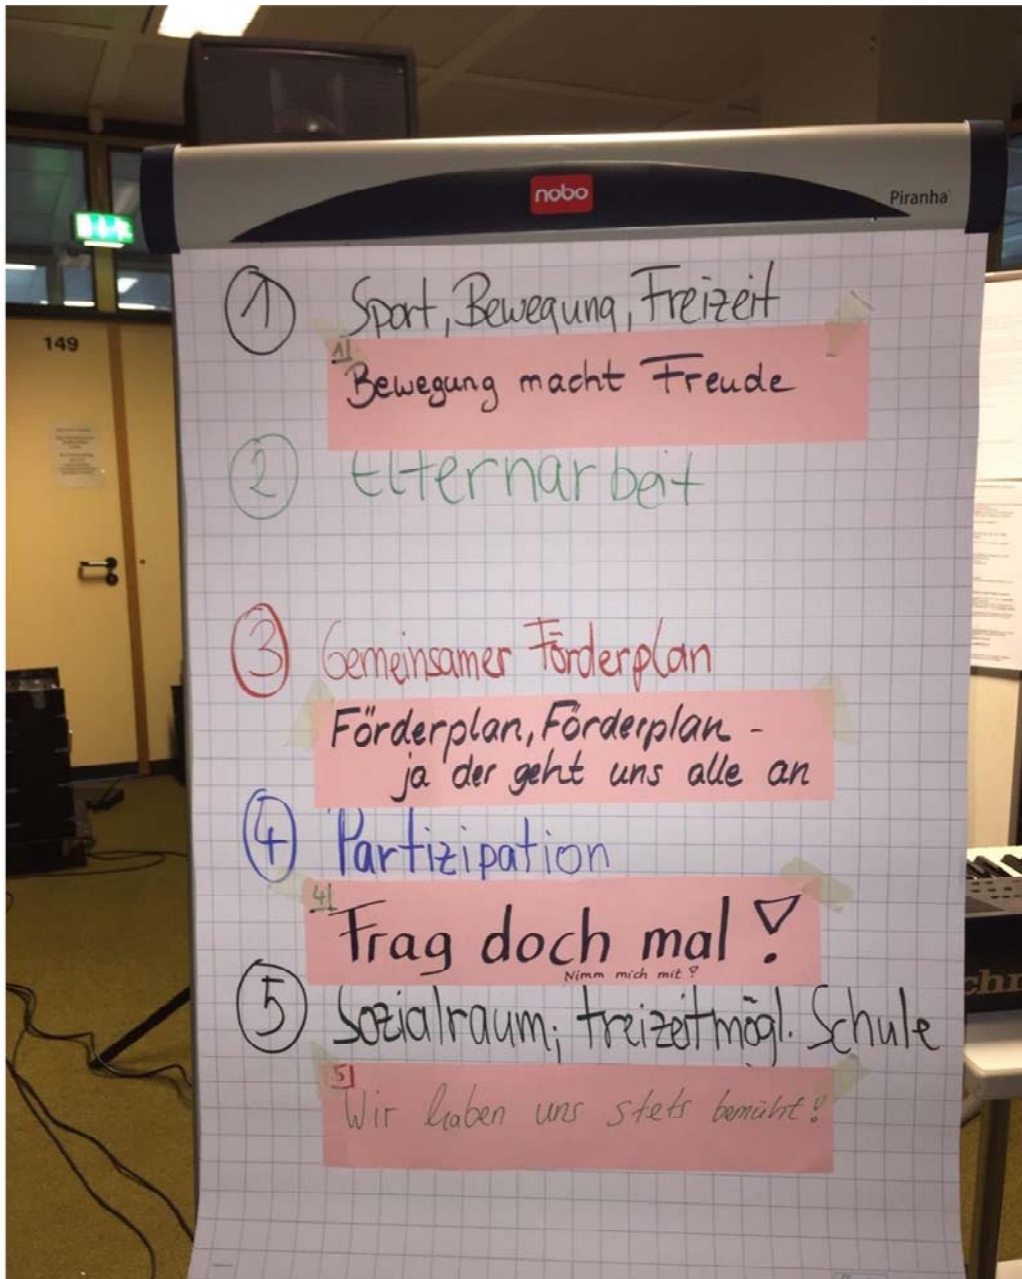 nobo
Piranha
149
1 Sport, Bewegung, Freizeit
1|
Bewegung macht Freude
2 Elternarbeit
3 Gemeinsamer Förderplan
Förderplan, Förderplan -
ja der geht uns alle an
4 Partizipation
4|
Frag doch mal!
Nimm mich mit?
5 Sozialraum; Freizeitmögl. Schule
5|
Wir haben uns stets bemüht!